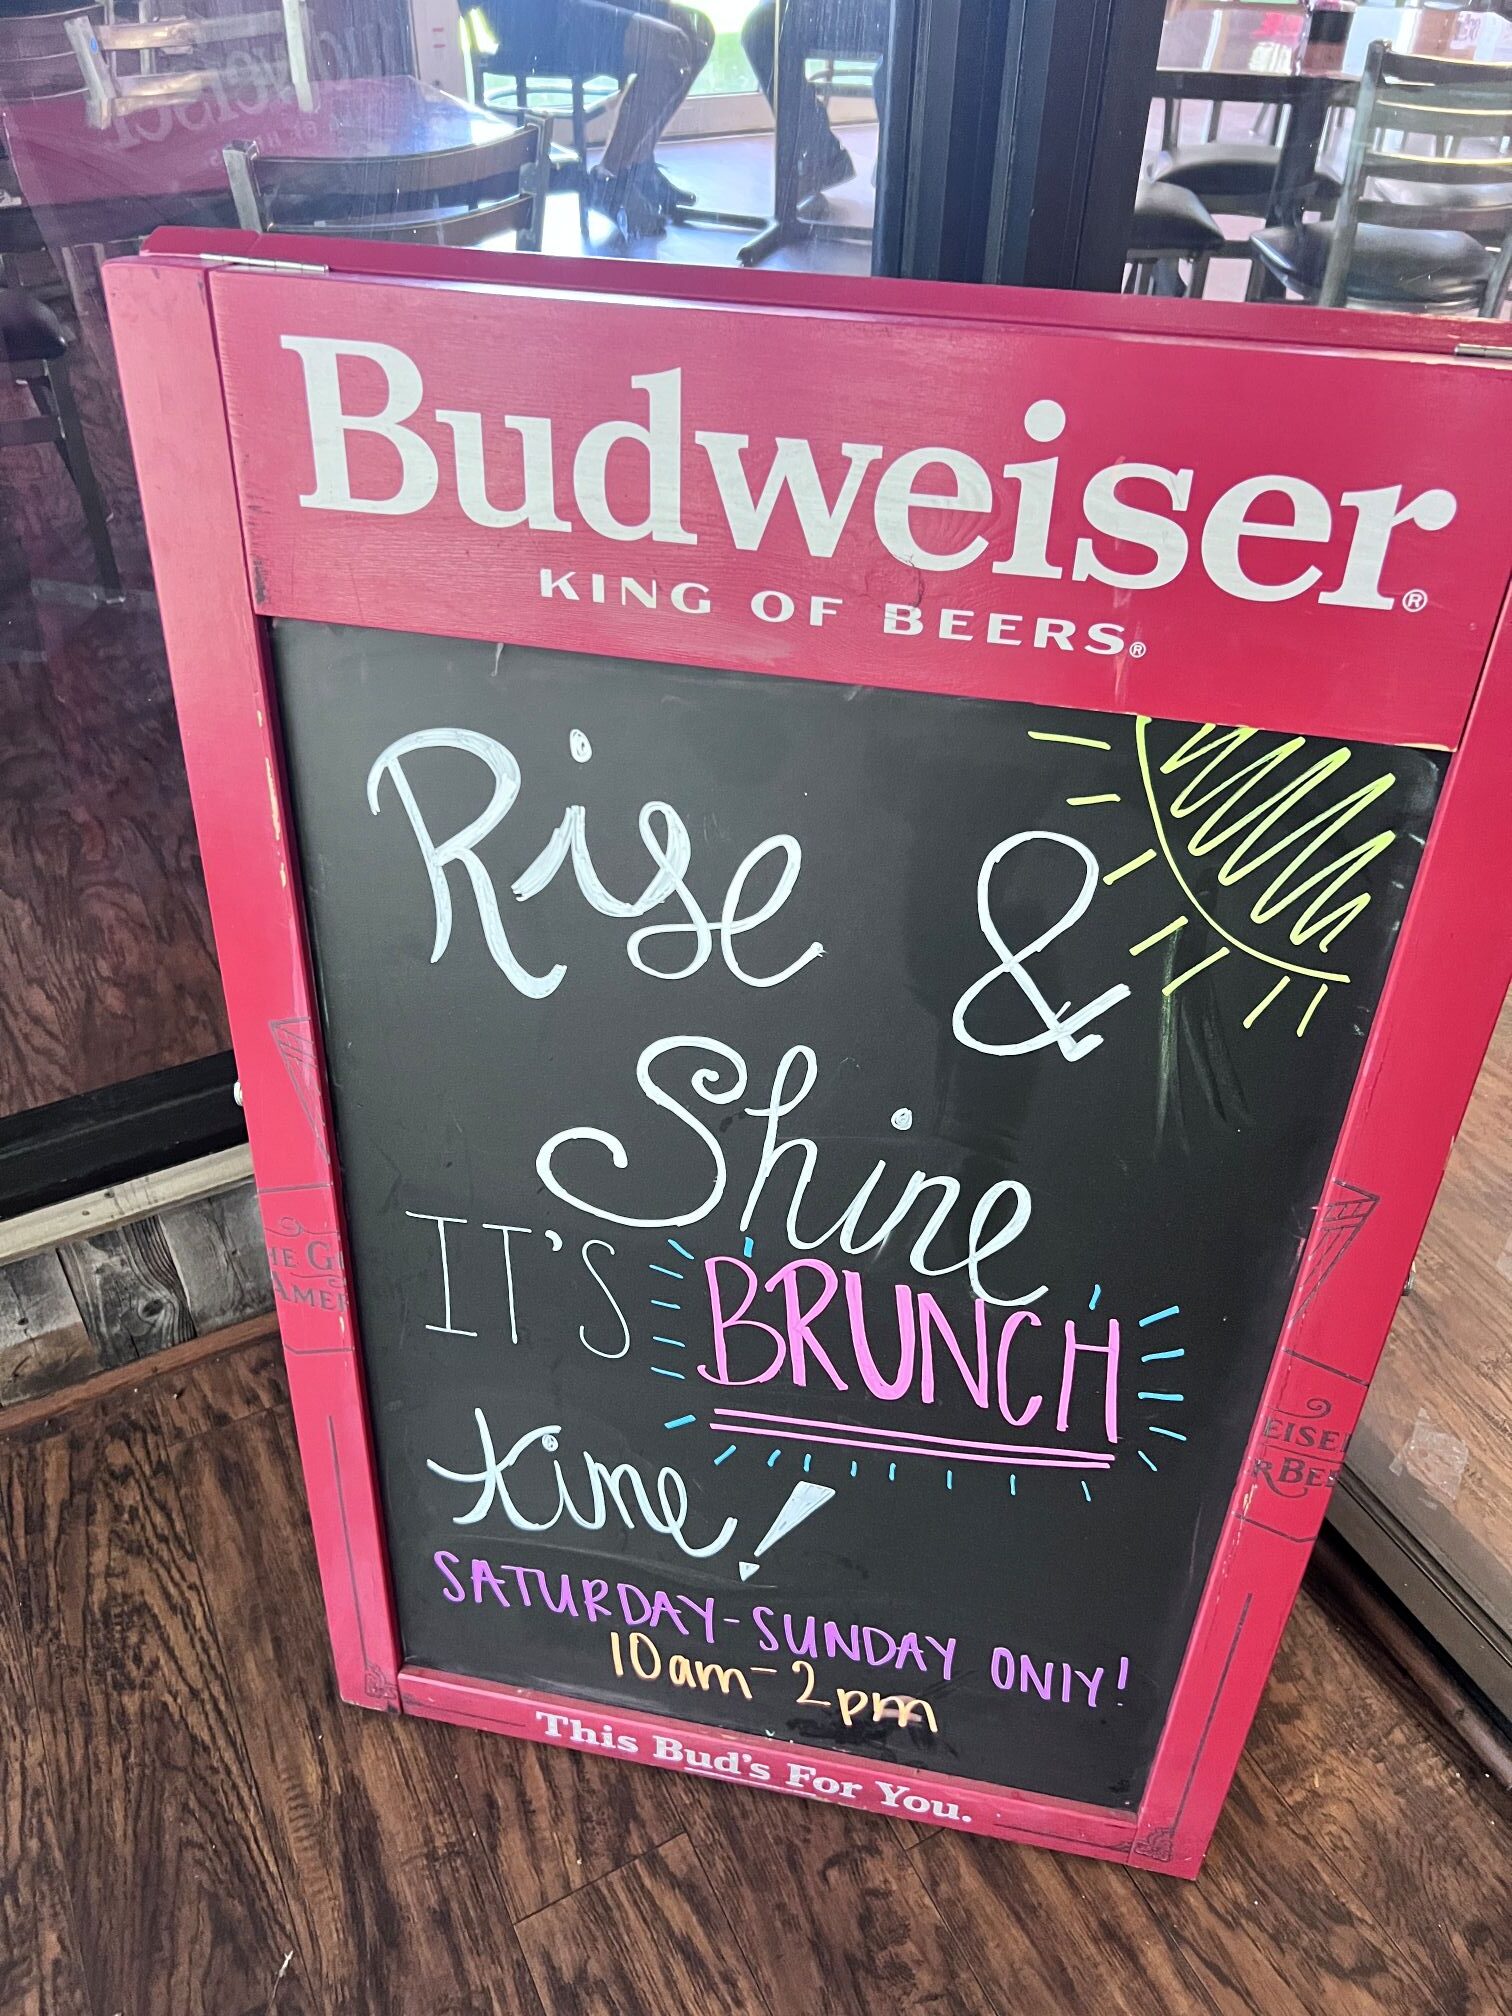 Budweiser®
KING OF BEERS®
Rise &
Shine
IT'S BRUNCH
time!
SATURDAY-SUNDAY ONlY!
10am-2pm
This Bud's For You.